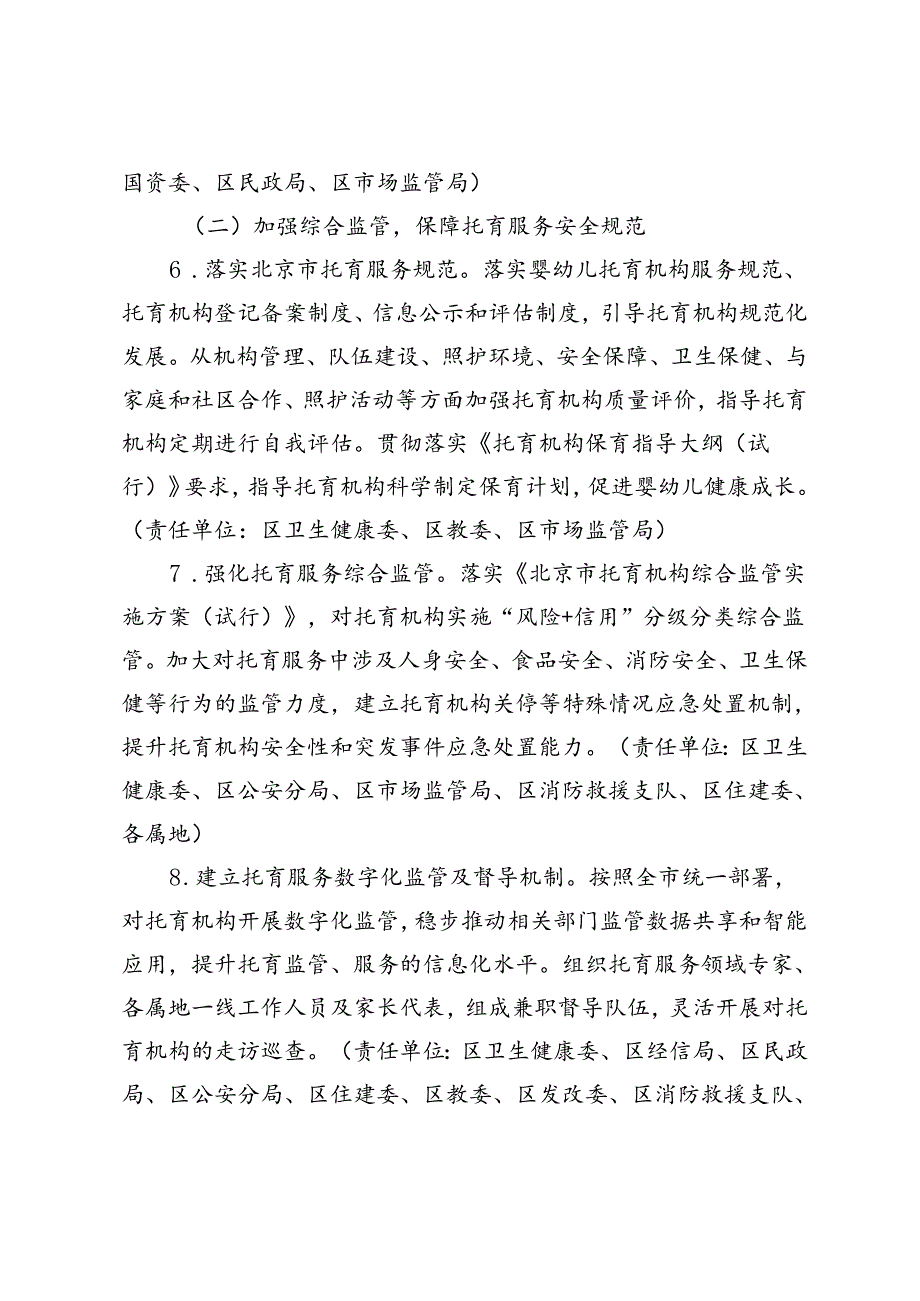 国资委、区民政局、区市场监管局）
（二）加强综合监管，保障托育服务安全规范
6．落实北京市托育服务规范。落实婴幼儿托育机构服务规范、
托育机构登记备案制度、信息公示和评估制度，引导托育机构规范化
发展。从机构管理、队伍建设、照护环境、安全保障、卫生保健、与
家庭和社区合作、照护活动等方面加强托育机构质量评价，指导托育
机构定期进行自我评估。贯彻落实《托育机构保育指导大纲（试
行）》要求，指导托育机构科学制定保育计划，促进婴幼儿健康成长。
（责任单位：区卫生健康委、区教委、区市场监管局）
7．强化托育服务综合监管。落实《北京市托育机构综合监管实
施方案（试行）》，对托育机构实施“风险+信用”分级分类综合监
管。加大对托育服务中涉及人身安全、食品安全、消防安全、卫生保
健等行为的监管力度，建立托育机构关停等特殊情况应急处置机制，
提升托育机构安全性和突发事件应急处置能力。（责任单位：区卫生
健康委、区公安分局、区市场监管局、区消防救援支队、区住建委、
各属地）
8.建立托育服务数字化监管及督导机制。按照全市统一部署，
对托育机构开展数字化监管，稳步推动相关部门监管数据共享和智能
应用，提升托育监管、服务的信息化水平。组织托育服务领域专家、
各属地一线工作人员及家长代表，组成兼职督导队伍，灵活开展对托
育机构的走访巡查。（责任单位：区卫生健康委、区经信局、区民政
局、区公安分局、区住建委、区教委、区发改委、区消防救援支队、